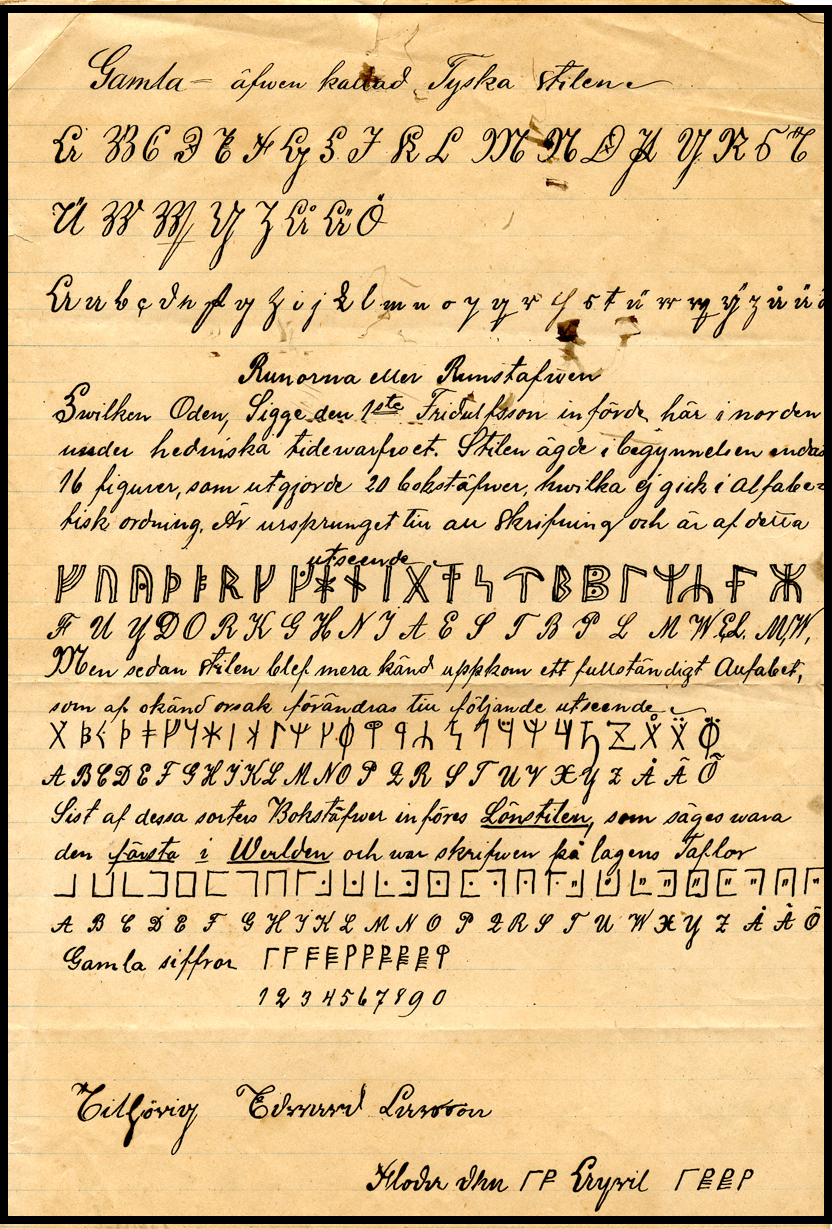 Gamla= äfwen kallad Tyska stilen
A B C D E F G H I K L M N O P Q R S T
U V W Y Z Å Ä Ö
A a b c d e f g h i j k l m n o p q r s t u v w y z å ä
Runorna eller Runstafwen
Hwilken Oden, Sigge den 1ste Fridulfsson införde här i norden
under hedniska tidewarfwet. Stilen ägde i begynnelsen endas
16 figurer, som utgjorde 20 bokstäfwer, hwilka ej gick i alfabe=
tisk ordning. Är ursprunget till all Skrifning och är af detta
utseende
F U Y D O R K G H N I A E S T B P L M W EL. M,W,
Men sedan stilen blef mera känd uppkom ett fullständigt Alfabet,
som af okänd orsak förändras till följande utseende
A B C D E F G H I K L M N O P Q R S T U V X Y Z Å Ä Ö
Sist af dessa sorters Bokstäfwer införes Lönstilen, som säges wara
den första i Werlden och war skrifwen på lagens Taflor
A B C D E F G H I K L M N O P Q R S T U W X Y Z Å Ä Ö
Gamla siffror
1 2 3 4 5 6 7 8 9 0
Tillhörig Edward Larsson
Floda den April